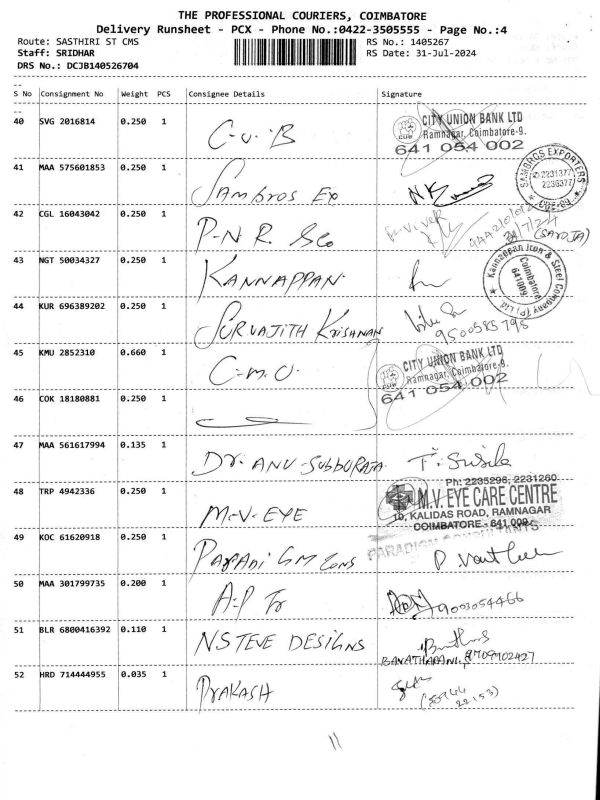 THE PROFESSIONAL COURIERS, COIMBATORE
Delivery Runsheet - PCX - Phone No.:0422-3505555 - Page No.:4
Route: SASTHIRI ST CMS
RS No.: 1405267
Staff: SRIDHAR
RS Date: 31-Jul-2024
DRS No.: DCJB140526704
S No Consignment No Weight PCS Consignee Details Signature
40 SVG 2016814 0.250 1 C-U-B
CITY UNION BANK LTD
Ramnagar, Coimbatore-9.
641 054 002
41 MAA 575601853 0.250 1 Sambros Ex
SAMBROS EXPORTERS
2231377
2236377
CBE-09
42 CGL 16043042 0.250 1 P-N R. &Co
31/7/24
(SAROJA)
43 NGT 50034327 0.250 1 KANNAPPAN
Kannappan Iron & Steel Company (P) Ltd
Coimbatore
641009
44 KUR 696389202 0.250 1 SURVAJITH KRISHNAN
9500583798
45 KMU 2852310 0.660 1 C-M.U.
CITY UNION BANK LTD
Ramnagar, Coimbatore-9.
641 054 002
46 COK 18180881 0.250 1
47 MAA 561617994 0.135 1 Dr. ANU-SUBBURAJA T. Susila
48 TRP 4942336 0.250 1 M-V-EYE
Ph: 2235296, 2231260
M.V. EYE CARE CENTRE
10, KALIDAS ROAD, RAMNAGAR
COIMBATORE - 641 009
49 KOC 61620918 0.250 1 PARADIGM Cons
PARADIGM CONSULTANTS
50 MAA 301799735 0.200 1 A-P Tr 9003054466
51 BLR 6800416392 0.110 1 NSTEVE DESIGNS
8709702427
52 HRD 714444955 0.035 1 PRAKASH
(88944
22153)
11